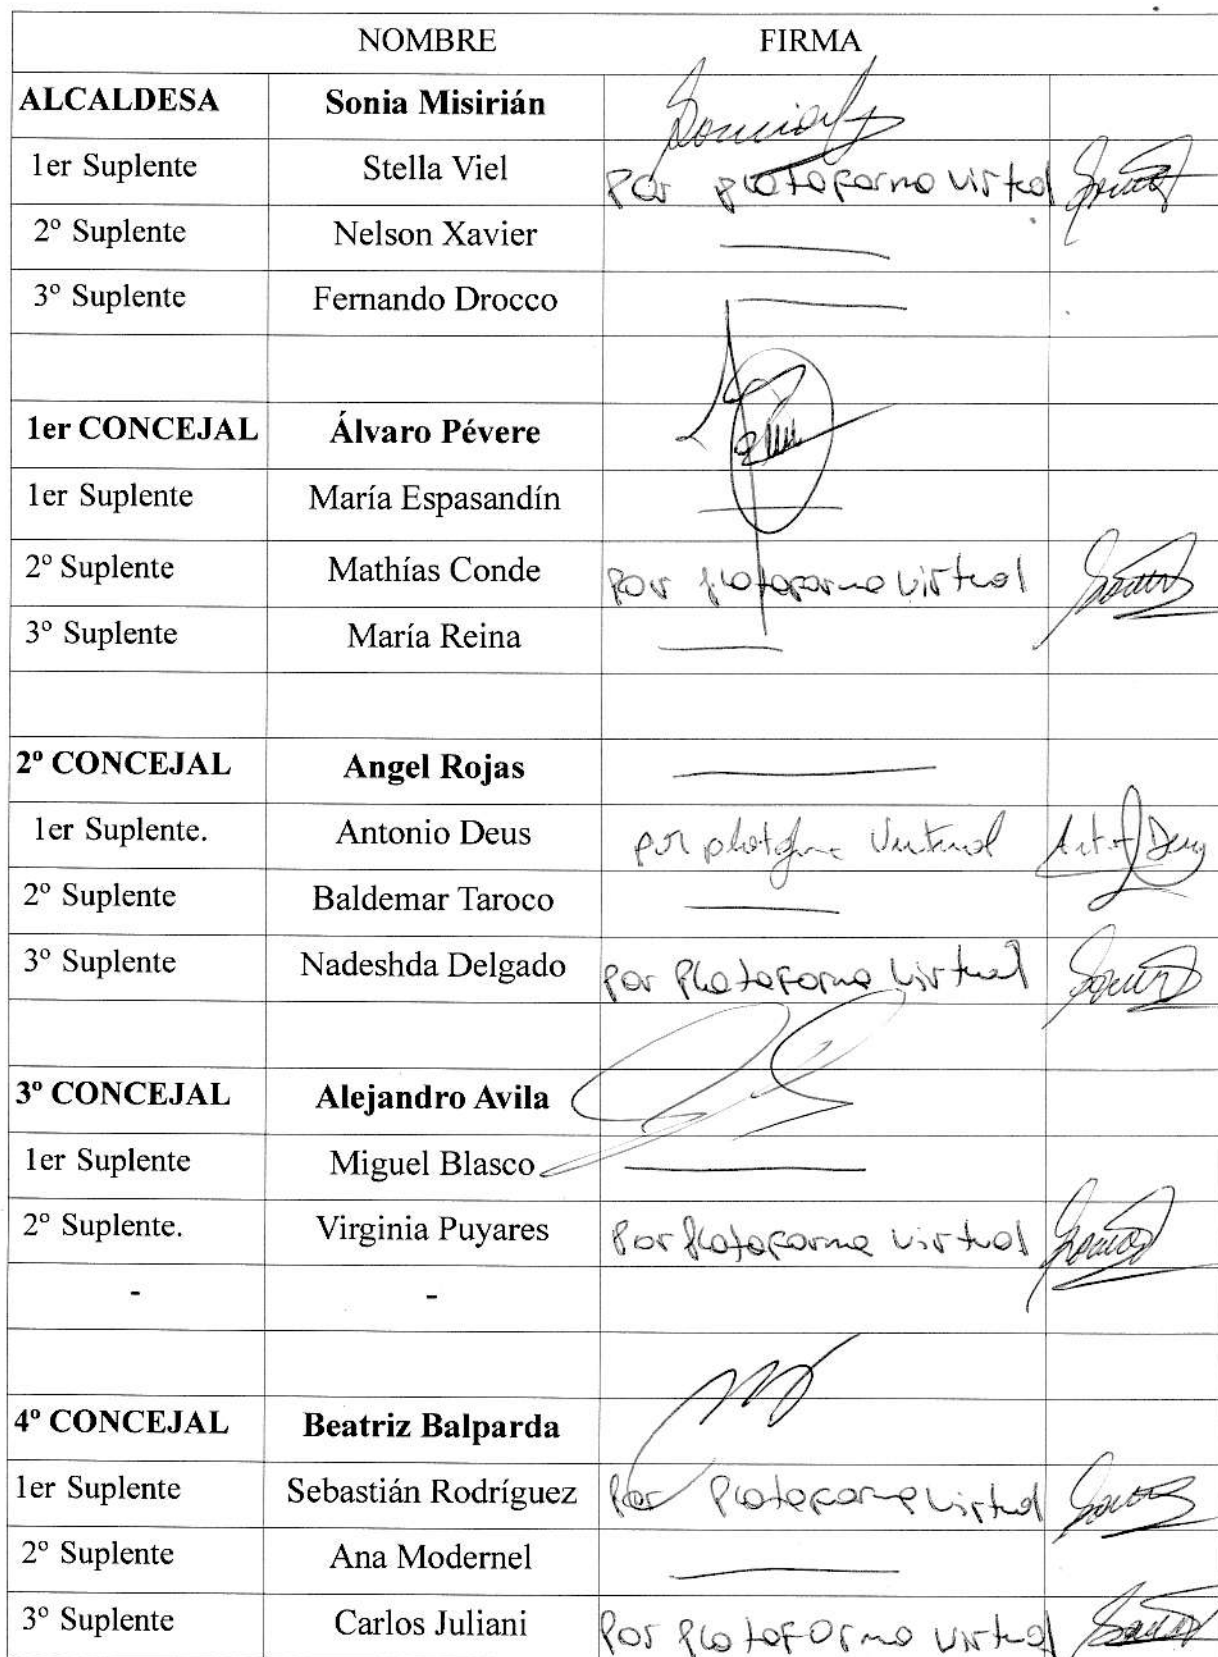 NOMBRE FIRMA
ALCALDESA Sonia Misirián
1er Suplente Stella Viel Por plataforma virtual
2º Suplente Nelson Xavier
3º Suplente Fernando Drocco
1er CONCEJAL Álvaro Pévere
1er Suplente María Espasandín
2º Suplente Mathías Conde Por plataforma virtual
3º Suplente María Reina
2º CONCEJAL Angel Rojas
1er Suplente. Antonio Deus por plataforma virtual
2º Suplente Baldemar Taroco
3º Suplente Nadeshda Delgado por Plataforma virtual
3º CONCEJAL Alejandro Avila
1er Suplente Miguel Blasco
2º Suplente. Virginia Puyares Por Plataforma virtual
- -
4º CONCEJAL Beatriz Balparda
1er Suplente Sebastián Rodríguez Por Plataforma virtual
2º Suplente Ana Modernel
3º Suplente Carlos Juliani Por plataforma virtual